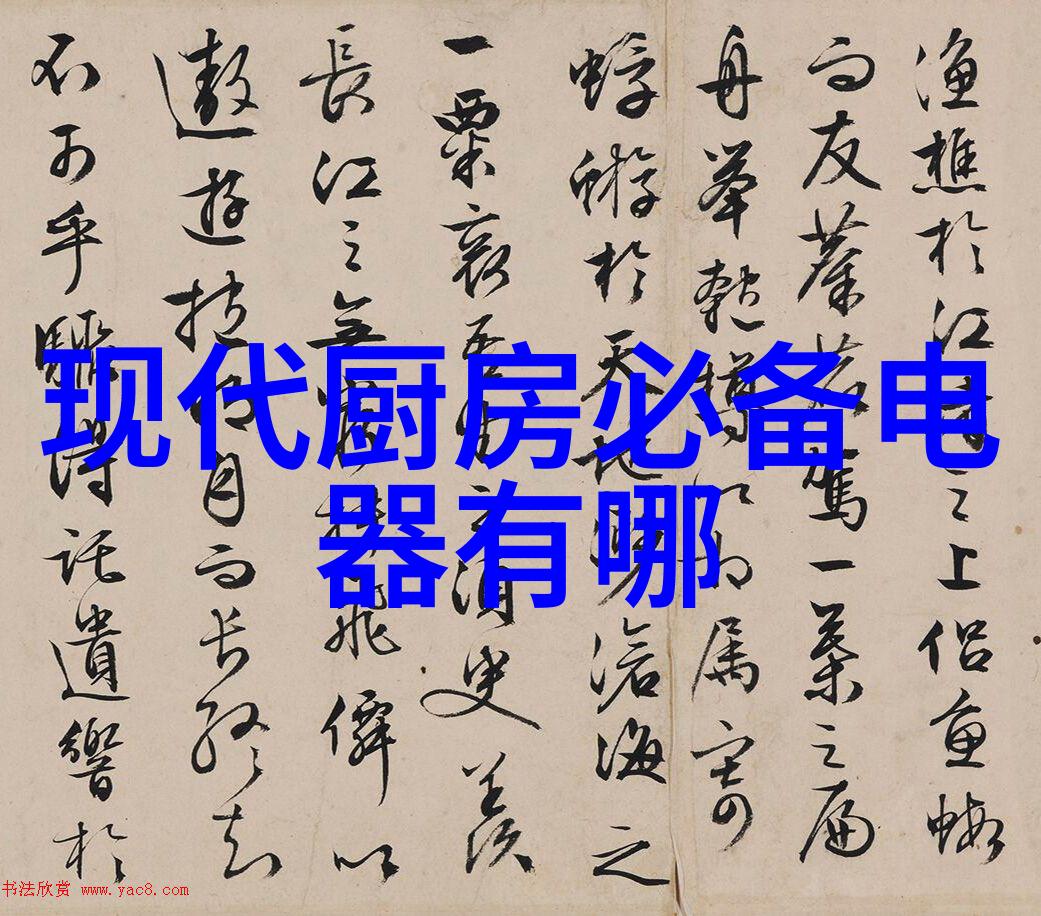 现代厨房必备电
器有哪
漁樵於江渚之上侶魚蝦
而友麋鹿駕一葉之扁
舟舉匏樽以相属寄
蜉蝣於天地渺滄海之
一粟哀吾生之須臾羨
長江之無窮挟飛僊以
遨遊抱明月而长終知
不可乎驟得託遺響於
书法欣赏 www.yac8.com